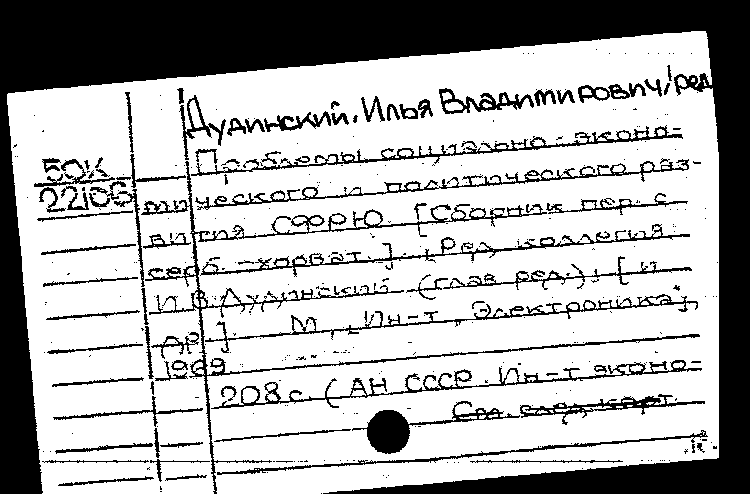 Дудинский, Илья Владимирович, /ред
50К
22106
Проблемы социально-эконо-
мического и политического раз-
вития СФРЮ. [Сборник пер. с
серб.-хорват.]. [Ред. коллегия:
И.В. Дудинский (глав. ред.), [и
др.]. М., [Ин-т "Электроника"],
1969
208 с. (АН СССР. Ин-т эконо-
См. след. карт.